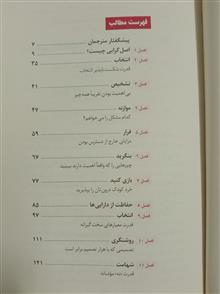 فهرست مطالب
پیشگفتار مترجمان ۷
فصل ۱ اصل‌گرایی چیست؟ ۹
فصل ۲ انتخاب ۳۵
قدرت شکست‌ناپذیر انتخاب
فصل ۳ تشخیص ۴۱
بی‌اهمیت بودن تقریباً همه‌چیز
فصل ۴ موازنه ۴۷
کدام مشکل را می‌خواهم؟
فصل ۵ فرار ۵۹
مزایای خارج از دسترس بودن
فصل ۶ بنگرید ۶۷
چیزهایی را که واقعاً اهمیت دارند ببینید
فصل ۷ بازی کنید ۷۷
خرد کودک درون‌تان را بپذیرید
فصل ۸ حفاظت از دارایی‌ها ۸۵
فصل ۹ انتخاب ۹۷
قدرت معیارهای سخت‌گیرانه
فصل ۱۰ روشنگری ۱۱۱
تصمیمی که با هزار تصمیم برابر است
فصل ۱۱ شهامت ۱۲۱
قدرت «نه» مؤدبانه